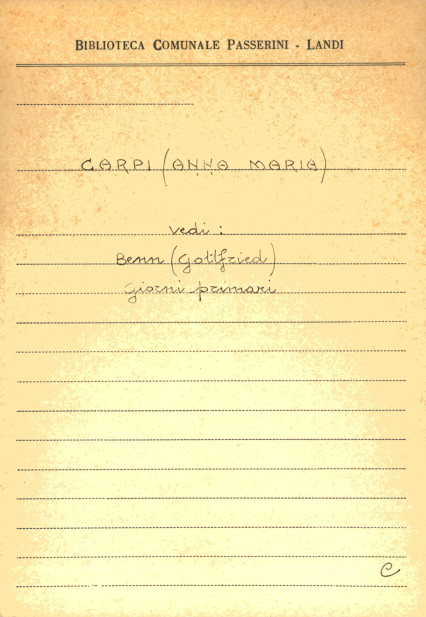 BIBLIOTECA COMUNALE PASSERINI - LANDI
CARPI (ANNA MARIA)
vedi :
Benn (Gottfried)
Giorni primari
C